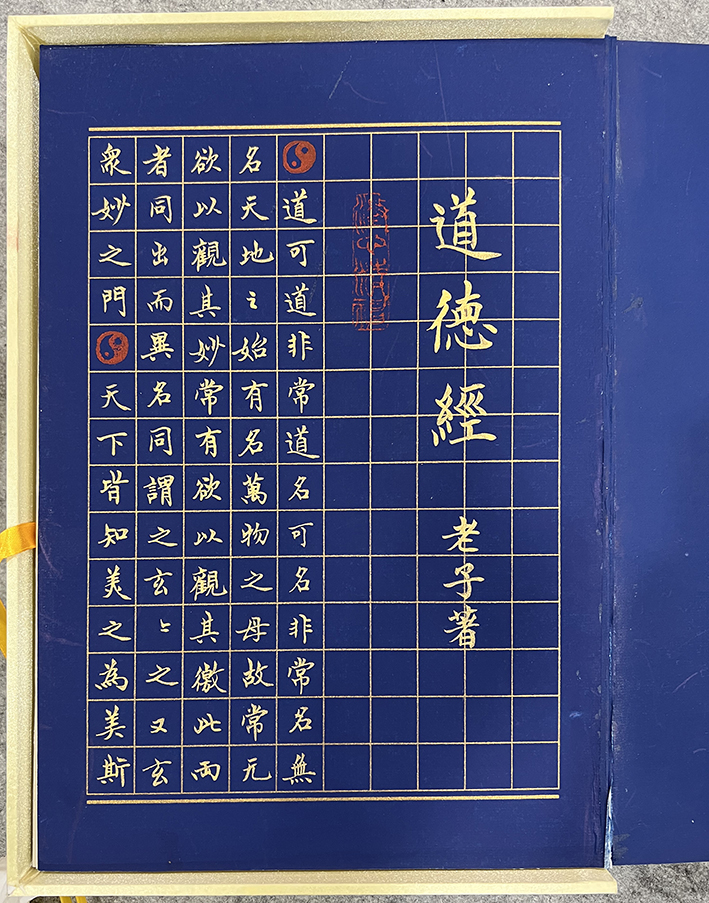 道德經
老子著
道可道非常道名可名非常名無
名天地之始有名萬物之母故常无
欲以觀其妙常有欲以觀其徼此兩
者同出而異名同謂之玄〻之又玄
衆妙之門天下皆知美之為美斯